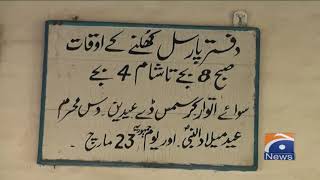 دفتر پارسل کھلنے کے اوقات
صبح 8 بجے تا شام 4 بجے
سوائے اتوار کرسمس ڈے عیدین۔ دس محرم
عید میلاد النبیؐ۔ اور یوم جمہوریہ 23 مارچ۔
Geo
News